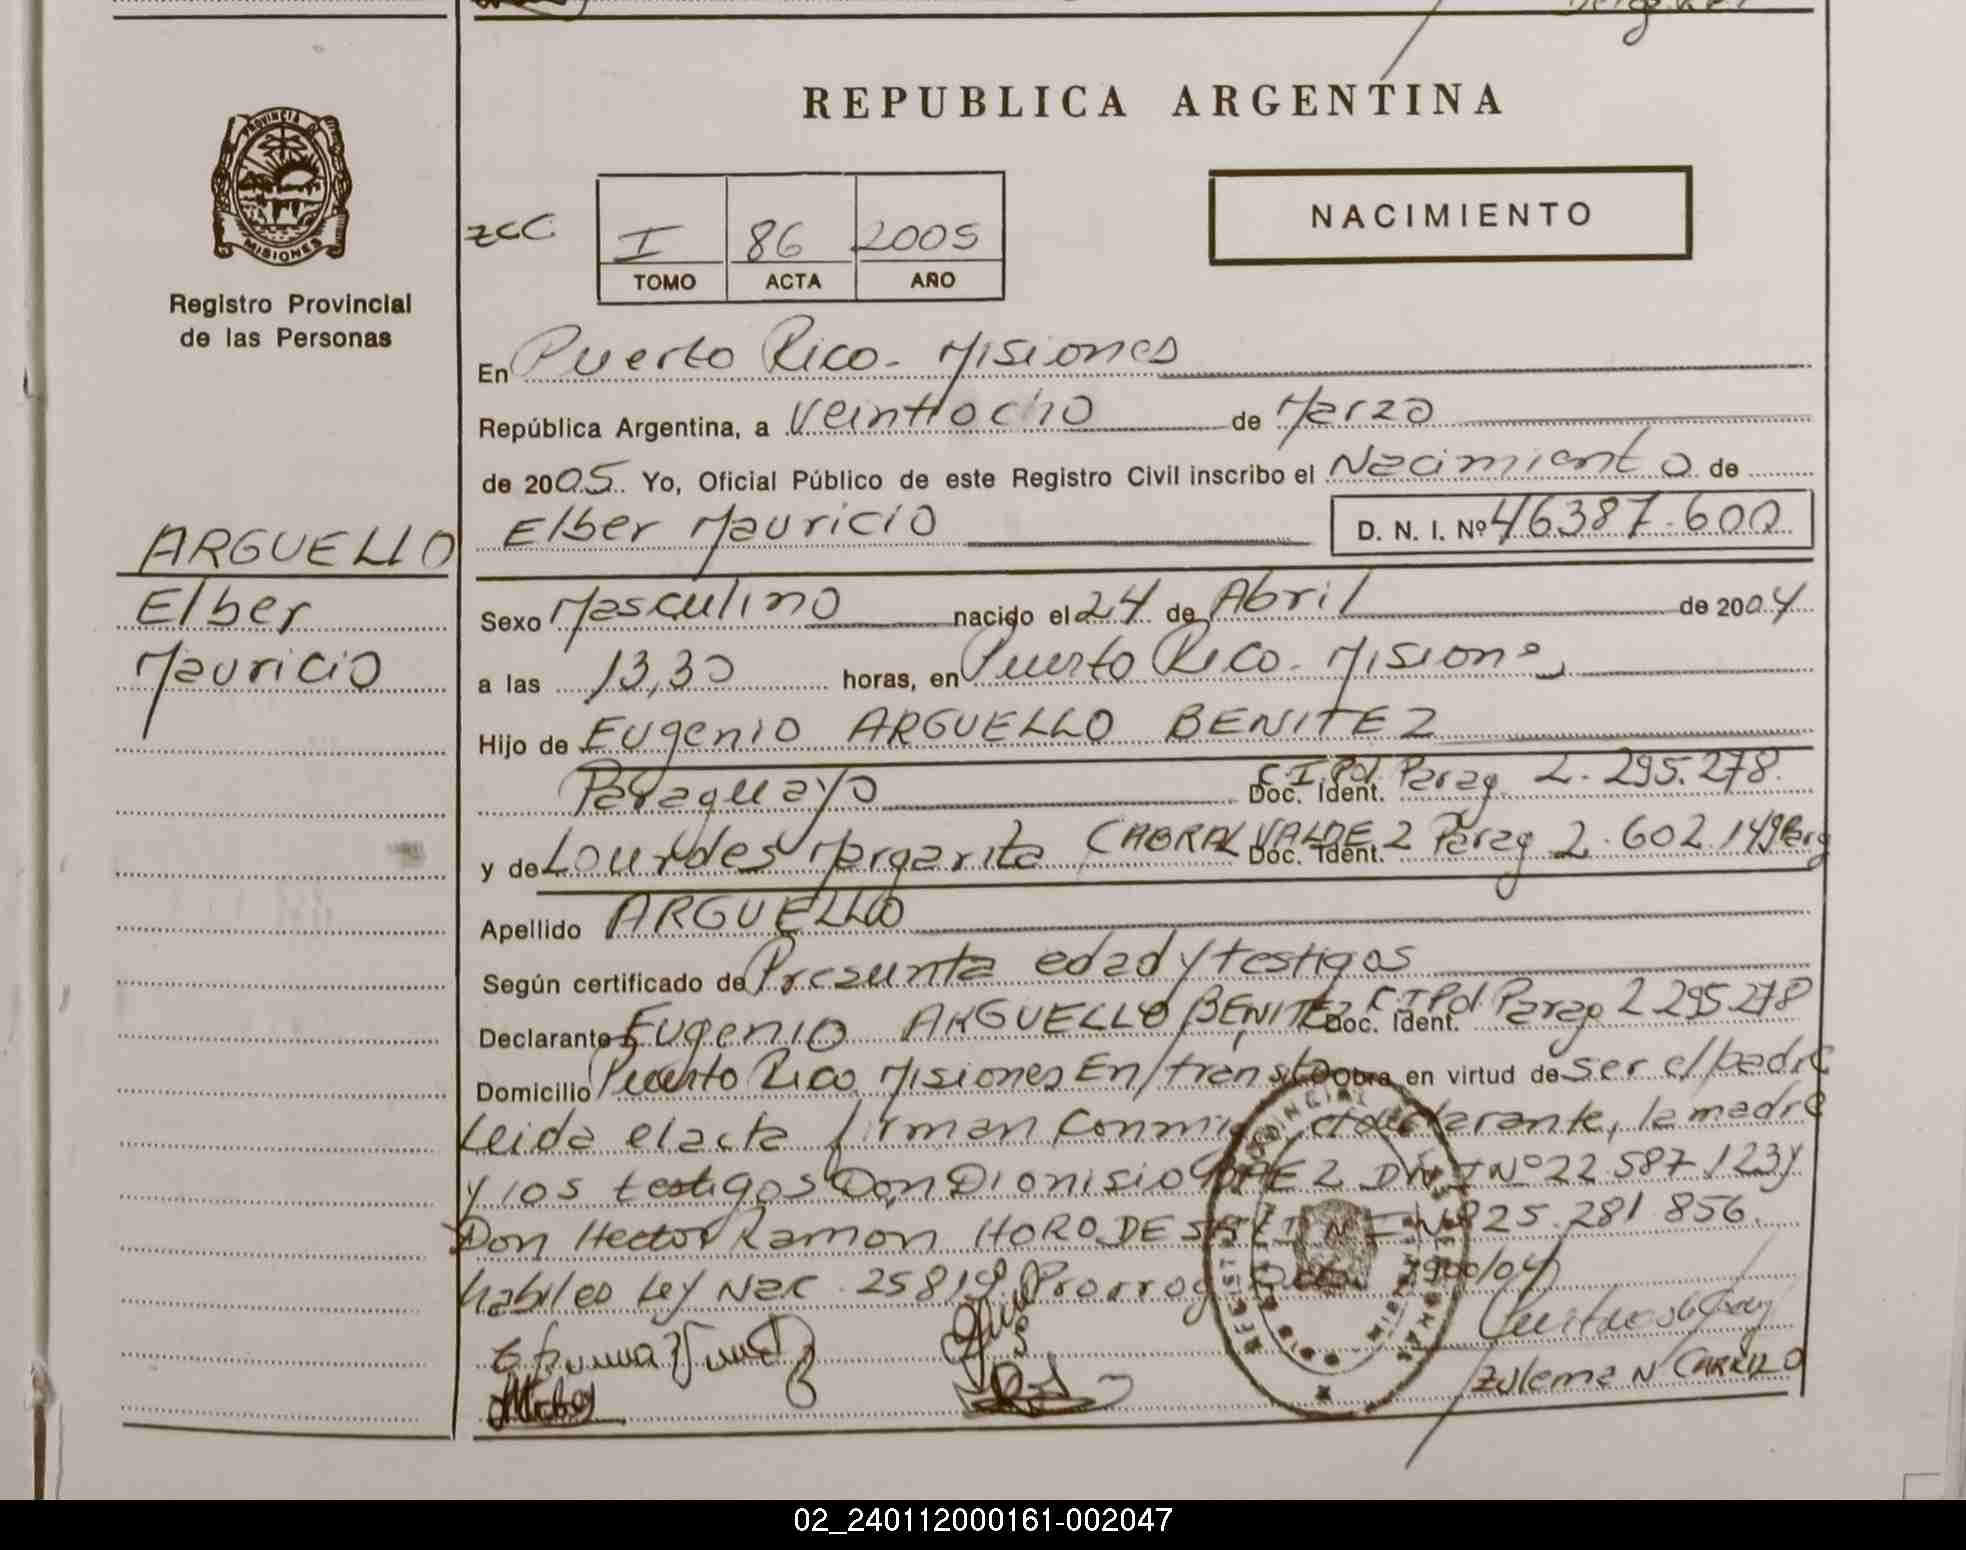 REPUBLICA ARGENTINA
PROVINCIA DE
MISIONES
Registro Provincial
de las Personas
ZCC
I 86 2005
TOMO ACTA AÑO
NACIMIENTO
En Puerto Rico - Misiones
República Argentina, a Veintiocho de Marzo
de 2005. Yo, Oficial Público de este Registro Civil inscribo el Nacimiento de
Elber Mauricio D. N. I. Nº 46387.600
ARGUELLO
Elber
Mauricio
Sexo Masculino nacido el 24 de Abril de 2004
a las 13,30 horas, en Puerto Rico - Misiones
Hijo de Eugenio ARGUELLO BENITEZ
Paraguayo Doc. Ident. C.I.Pol. Parag 2.295.278.
y de Lourdes Margarita CABRAL VALDEZ Doc. Ident. Parag 2.602.149 Parg
Apellido ARGUELLO
Según certificado de Presunta edad y testigos
Declarante Eugenio ARGUELLO BENITEZ Doc. Ident. C.I.Pol. Parag 2 295 278
Domicilio Puerto Rico Misiones En/transito Obra en virtud de ser el padre
Leida el acta firman conmigo, el declarante, la madre
y los testigos Don Dionisio DNI Nº 22.587.123 y
Don Hector Ramon HORO DE Nº 25.281.856.
habiles Ley Nac. 25819 900/04
Zulema N CARRILLO
02_240112000161-002047